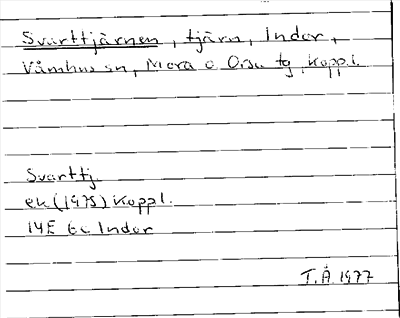 Svarttjärnen, tjärn, Indor,
Våmhus sn, Mora o Orsa tg, Koppl.
Svarttj.
ek (1975) Koppl.
14E 6c Indor
T.Å 1977